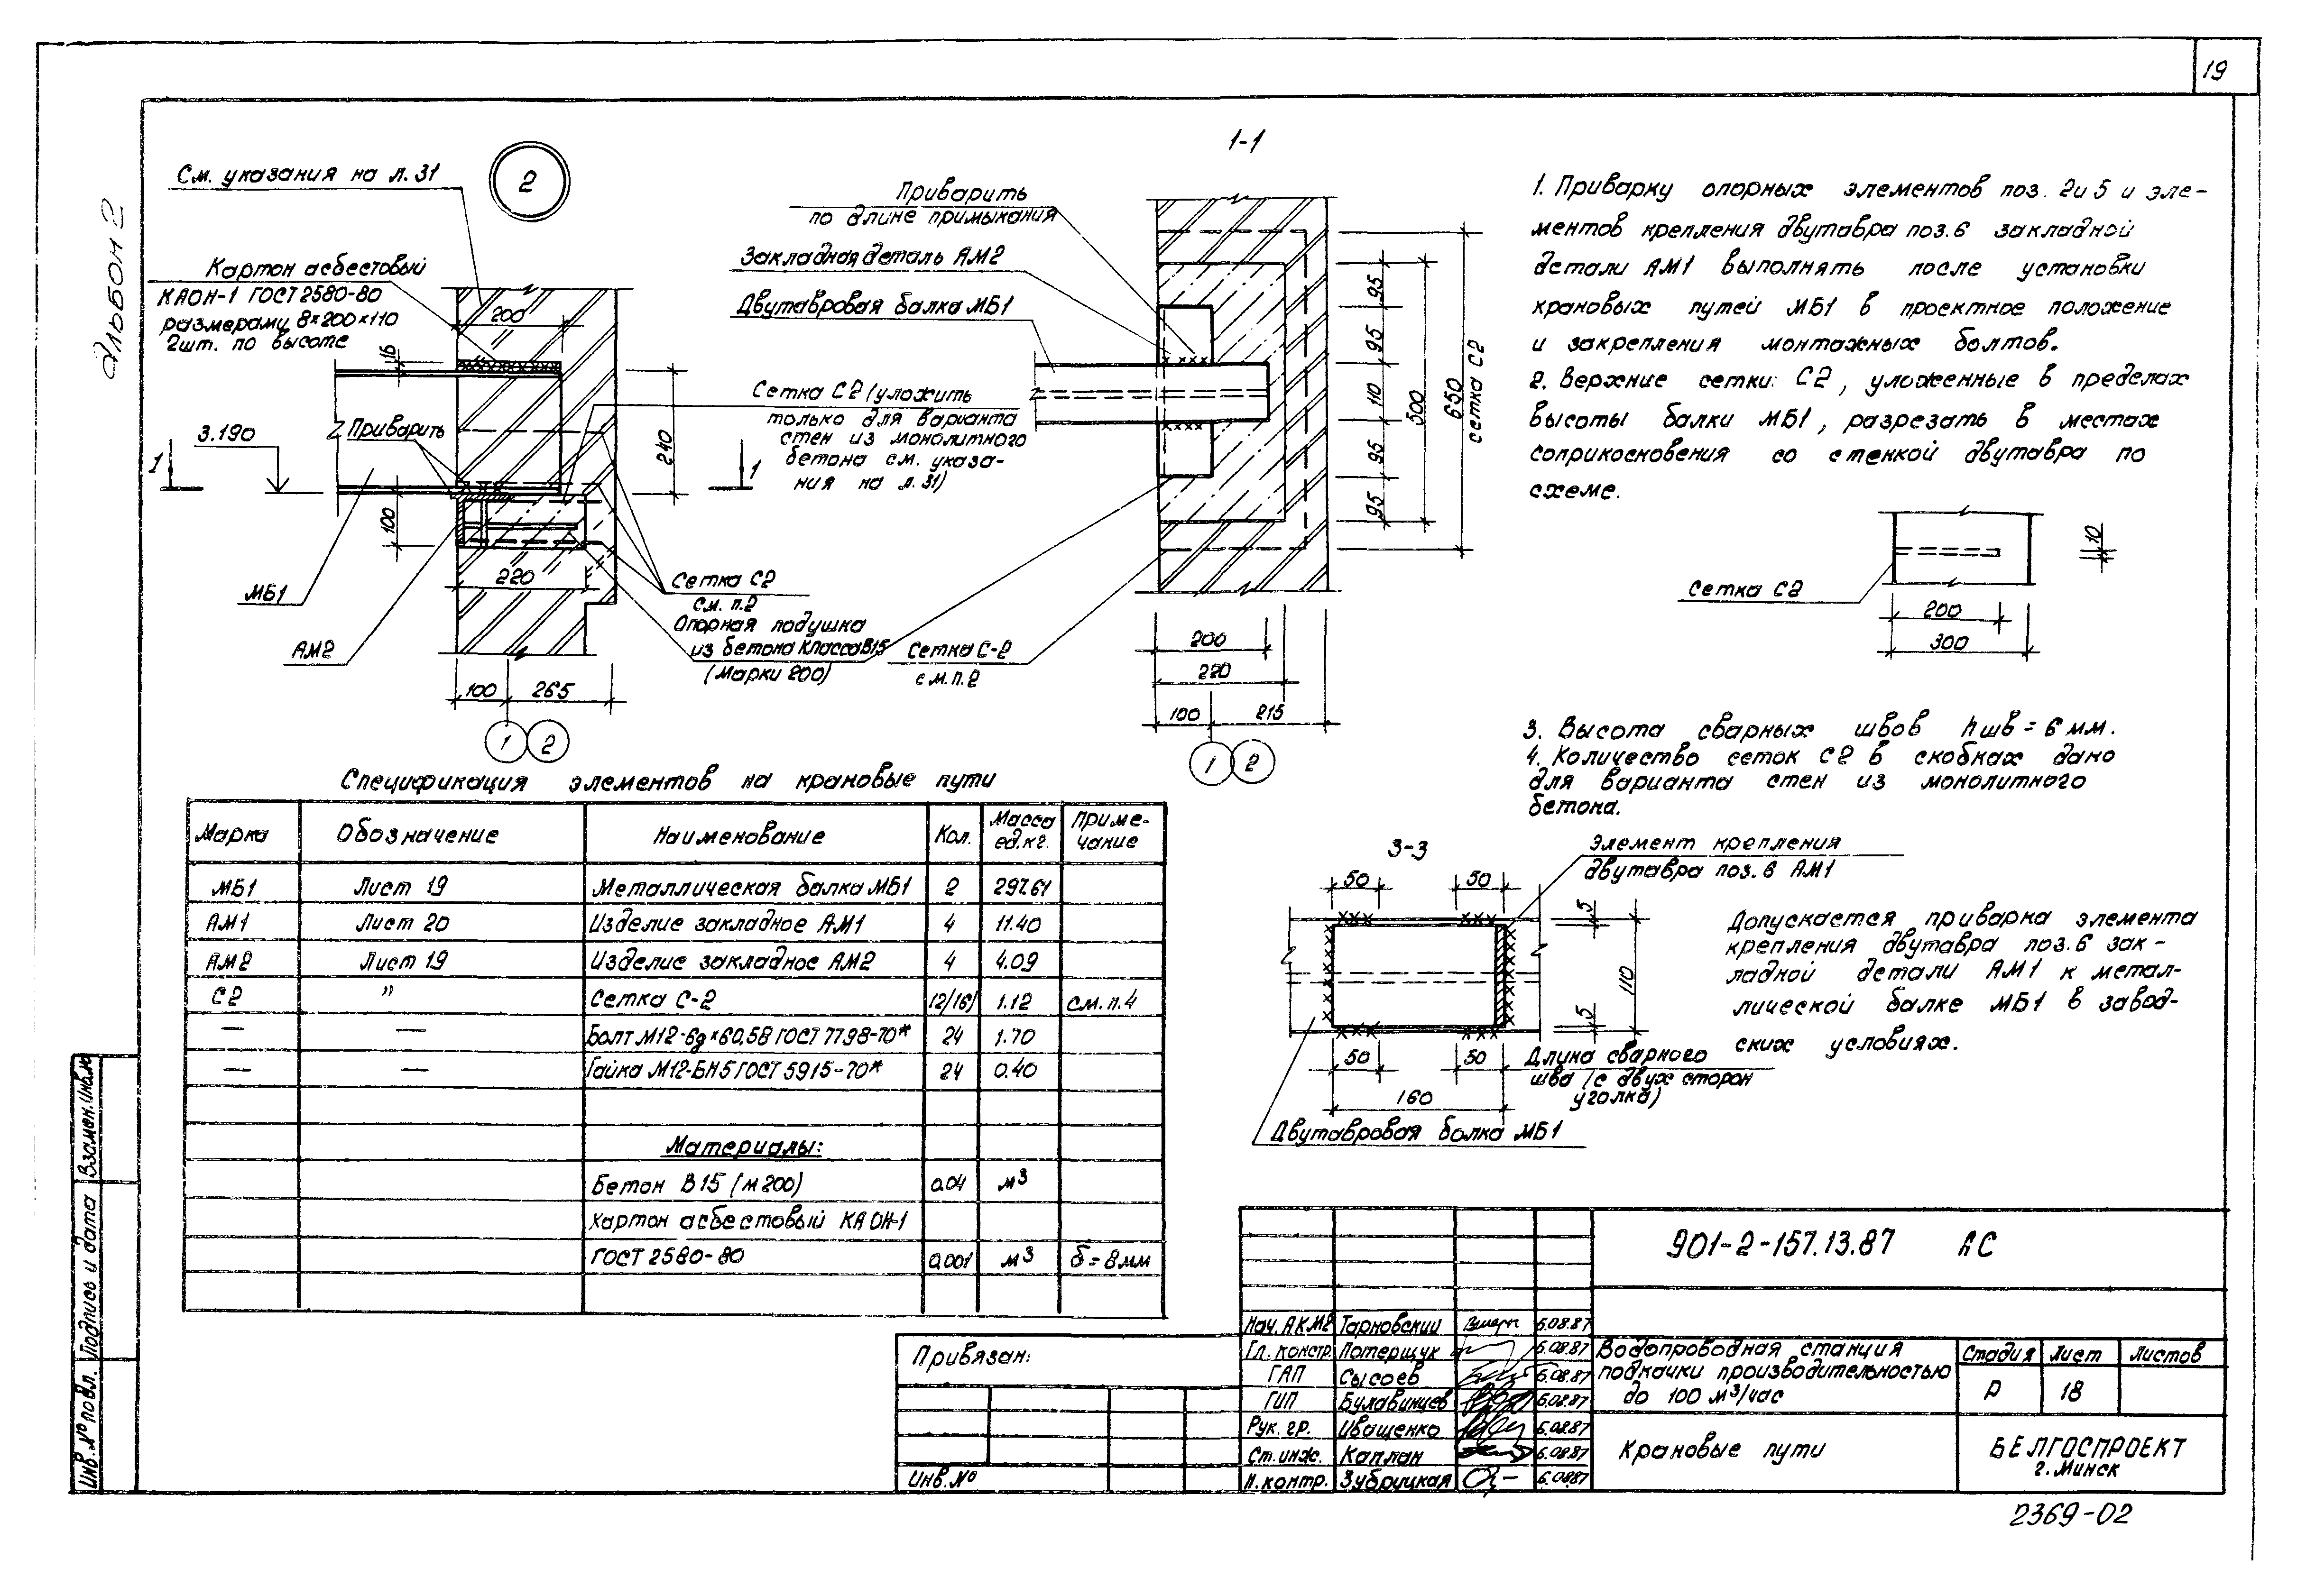 19
Альбом 2
2
1-1
См. указания на л. 31
Картон асбестовый
КАОН-1 ГОСТ 2580-80
размерами 8×200×110
2шт. по высоте
200
16
3.190
Приварить
240
100
1
1
220
МБ1
АМ2
100
265
1
2
Сетка С2 (уложить
только для варианта
стен из монолитного
бетона см. указа-
ния на л. 31)
Сетка С2
см. п.2
Опорная подушка
из бетона класса В15
(марки 200)
Приварить
по длине примыкания
Закладная деталь АМ2
Двутавровая балка МБ1
Сетка С-2
см. п. 2
95
95
110
95
95
500
650
сетка С2
200
220
100
215
1
2
1. Приварку опорных элементов поз. 2 и 5 и эле-
ментов крепления двутавра поз. 6 закладной
детали АМ1 выполнять после установки
крановых путей МБ1 в проектное положение
и закрепления монтажных болтов.
2. Верхние сетки С2, уложенные в пределах
высоты балки МБ1, разрезать в местах
соприкосновения со стенкой двутавра по
схеме.
10
Сетка С2
200
300
3. Высота сварных швов hшв = 6 мм.
4. Количество сеток С2 в скобках дано
для варианта стен из монолитного
бетона.
3-3
Элемент крепления
двутавра поз. 6 АМ1
50
50
5
110
5
50
50
160
Длина сварного
шва (с двух сторон
уголка)
Двутавровая балка МБ1
Допускается приварка элемента
крепления двутавра поз. 6 зак-
ладной детали АМ1 к метал-
лической балке МБ1 в завод-
ских условиях.
Спецификация элементов на крановые пути
Марка Обозначение Наименование Кол. Масса ед. кг. Приме-чание
МБ1 Лист 19 Металлическая балка МБ1 2 297.61
АМ1 Лист 20 Изделие закладное АМ1 4 11.40
АМ2 Лист 19 Изделие закладное АМ2 4 4.09
С2 " Сетка С-2 12(16) 1.12 см. п. 4
— — Болт М12-6g×60.58 ГОСТ 7798-70* 24 1.70
— — Гайка М12-6Н5 ГОСТ 5915-70* 24 0.40
Материалы:
Бетон В15 (М200) 0.04 м³
Картон асбестовый КАОН-1
ГОСТ 2580-80 0,001 м³ δ = 8мм
Привязан:
Инв. №
901-2-157.13.87 АС
Нач. АКМ2 Тарновский 6.08.87
Гл. констр. Потерщук 6.08.87
ГАП Сысоев 6.08.87
ГИП Булавинцев 6.08.87
Рук. гр. Иващенко 6.08.87
Ст. инж. Каплан 6.08.87
Н. контр. Зубрицкая 6.08.87
Водопроводная станция
подкачки производительностью
до 100 м³/час
Стадия Лист Листов
Р 18
Крановые пути
БЕЛГОСПРОЕКТ
г. Минск
2369-02
Инв. № подл. Подпись и дата Взамен. инв. №